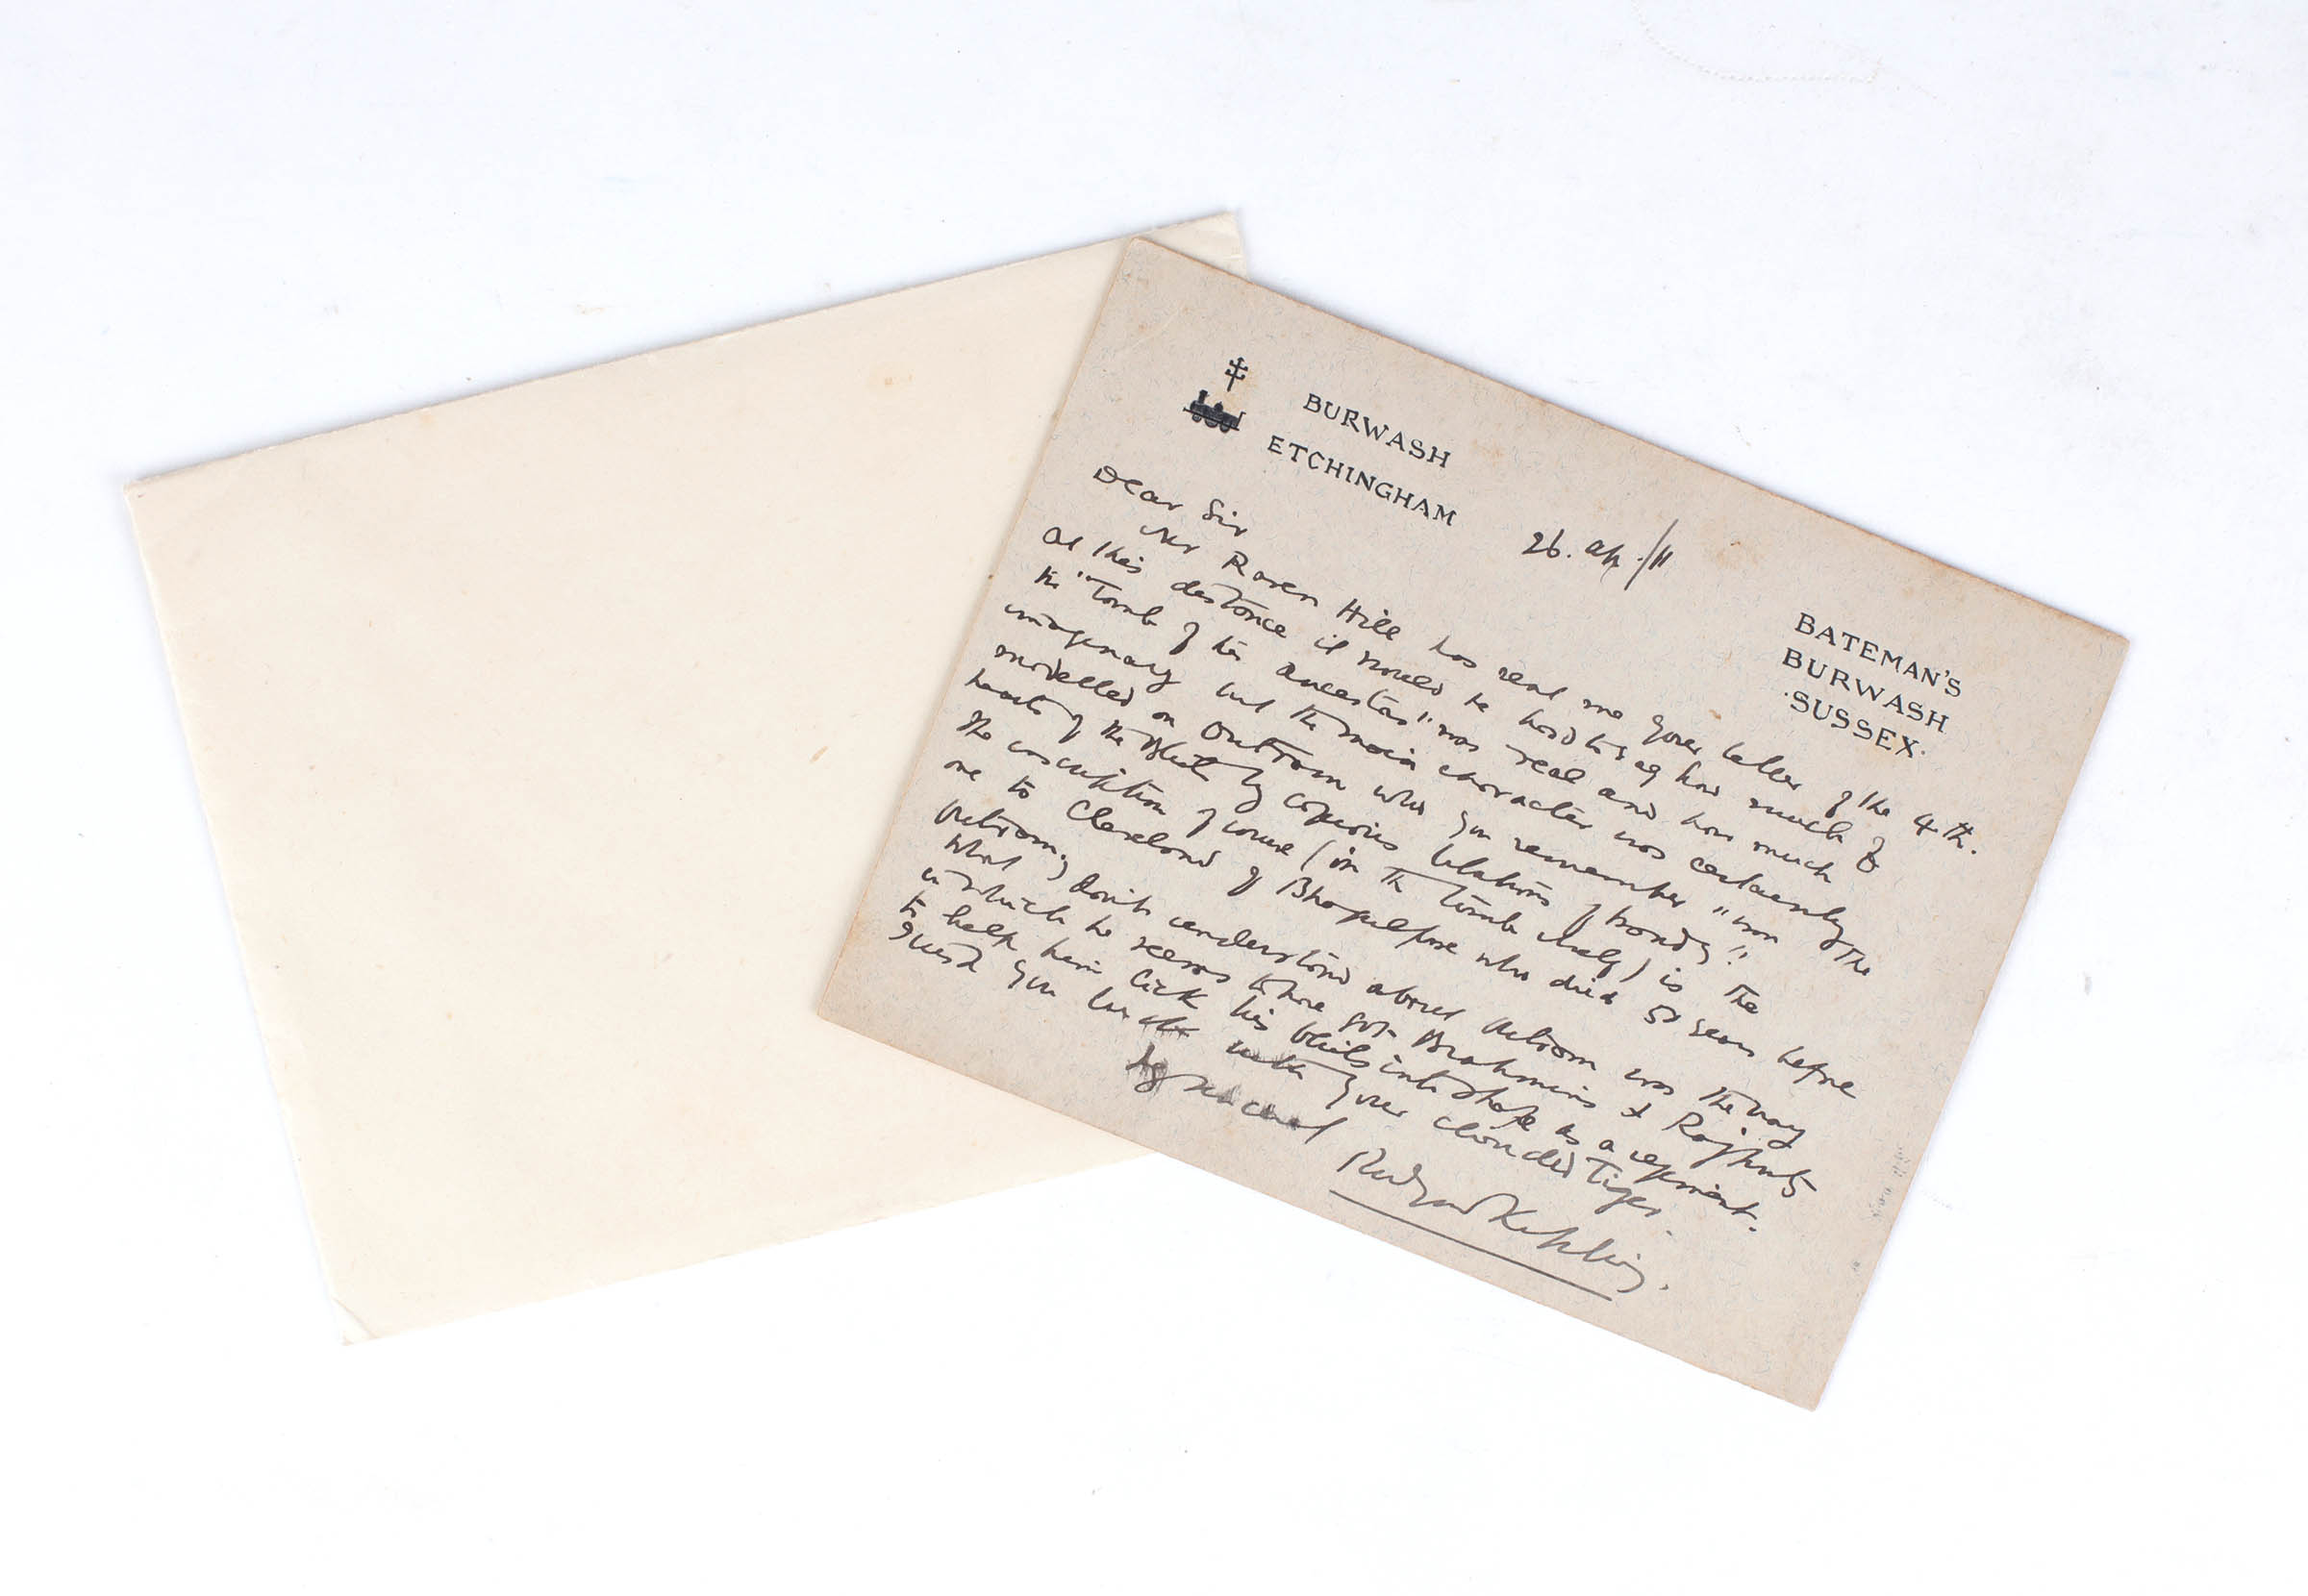 BURWASH
ETCHINGHAM
BATEMAN'S
BURWASH
·SUSSEX·
26. Ap. /11
Dear Sir
Mr Raven Hill has sent me your letter of the 4th.
At this distance it would be hard to say how much of
the "Tomb of his Ancestors" was real and how much
imaginary but the main character was certainly
modelled on Outram who you remember "won the
hearts of the Bhils by copious libations of brandy".
The inscription of course (in the tomb itself) is the
one to Cleveland of Bhagulpore who died 50 years before
Outram.
What I don't understand about Outram was the way
in which he seems to have got Brahmins & Rajputs
to help him lick his Bhils into shape as a regiment.
you with your clouded Tiger.
Rudyard Kipling.